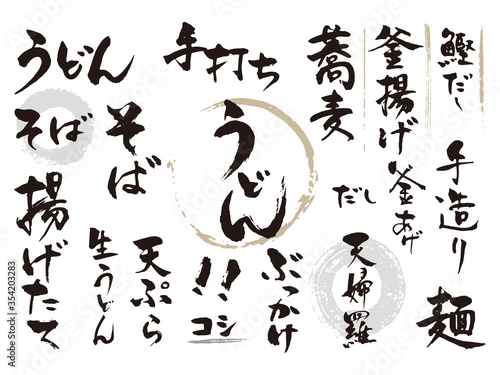 うどん
手打ち
蕎麦
釜揚げ
鰹だし
そば
そば
うどん
釜あげ
手造り
だし
揚げたて
生うどん
天ぷら
!!
コシ
ぶっかけ
天婦羅
麺
Adobe Stock | #354203283